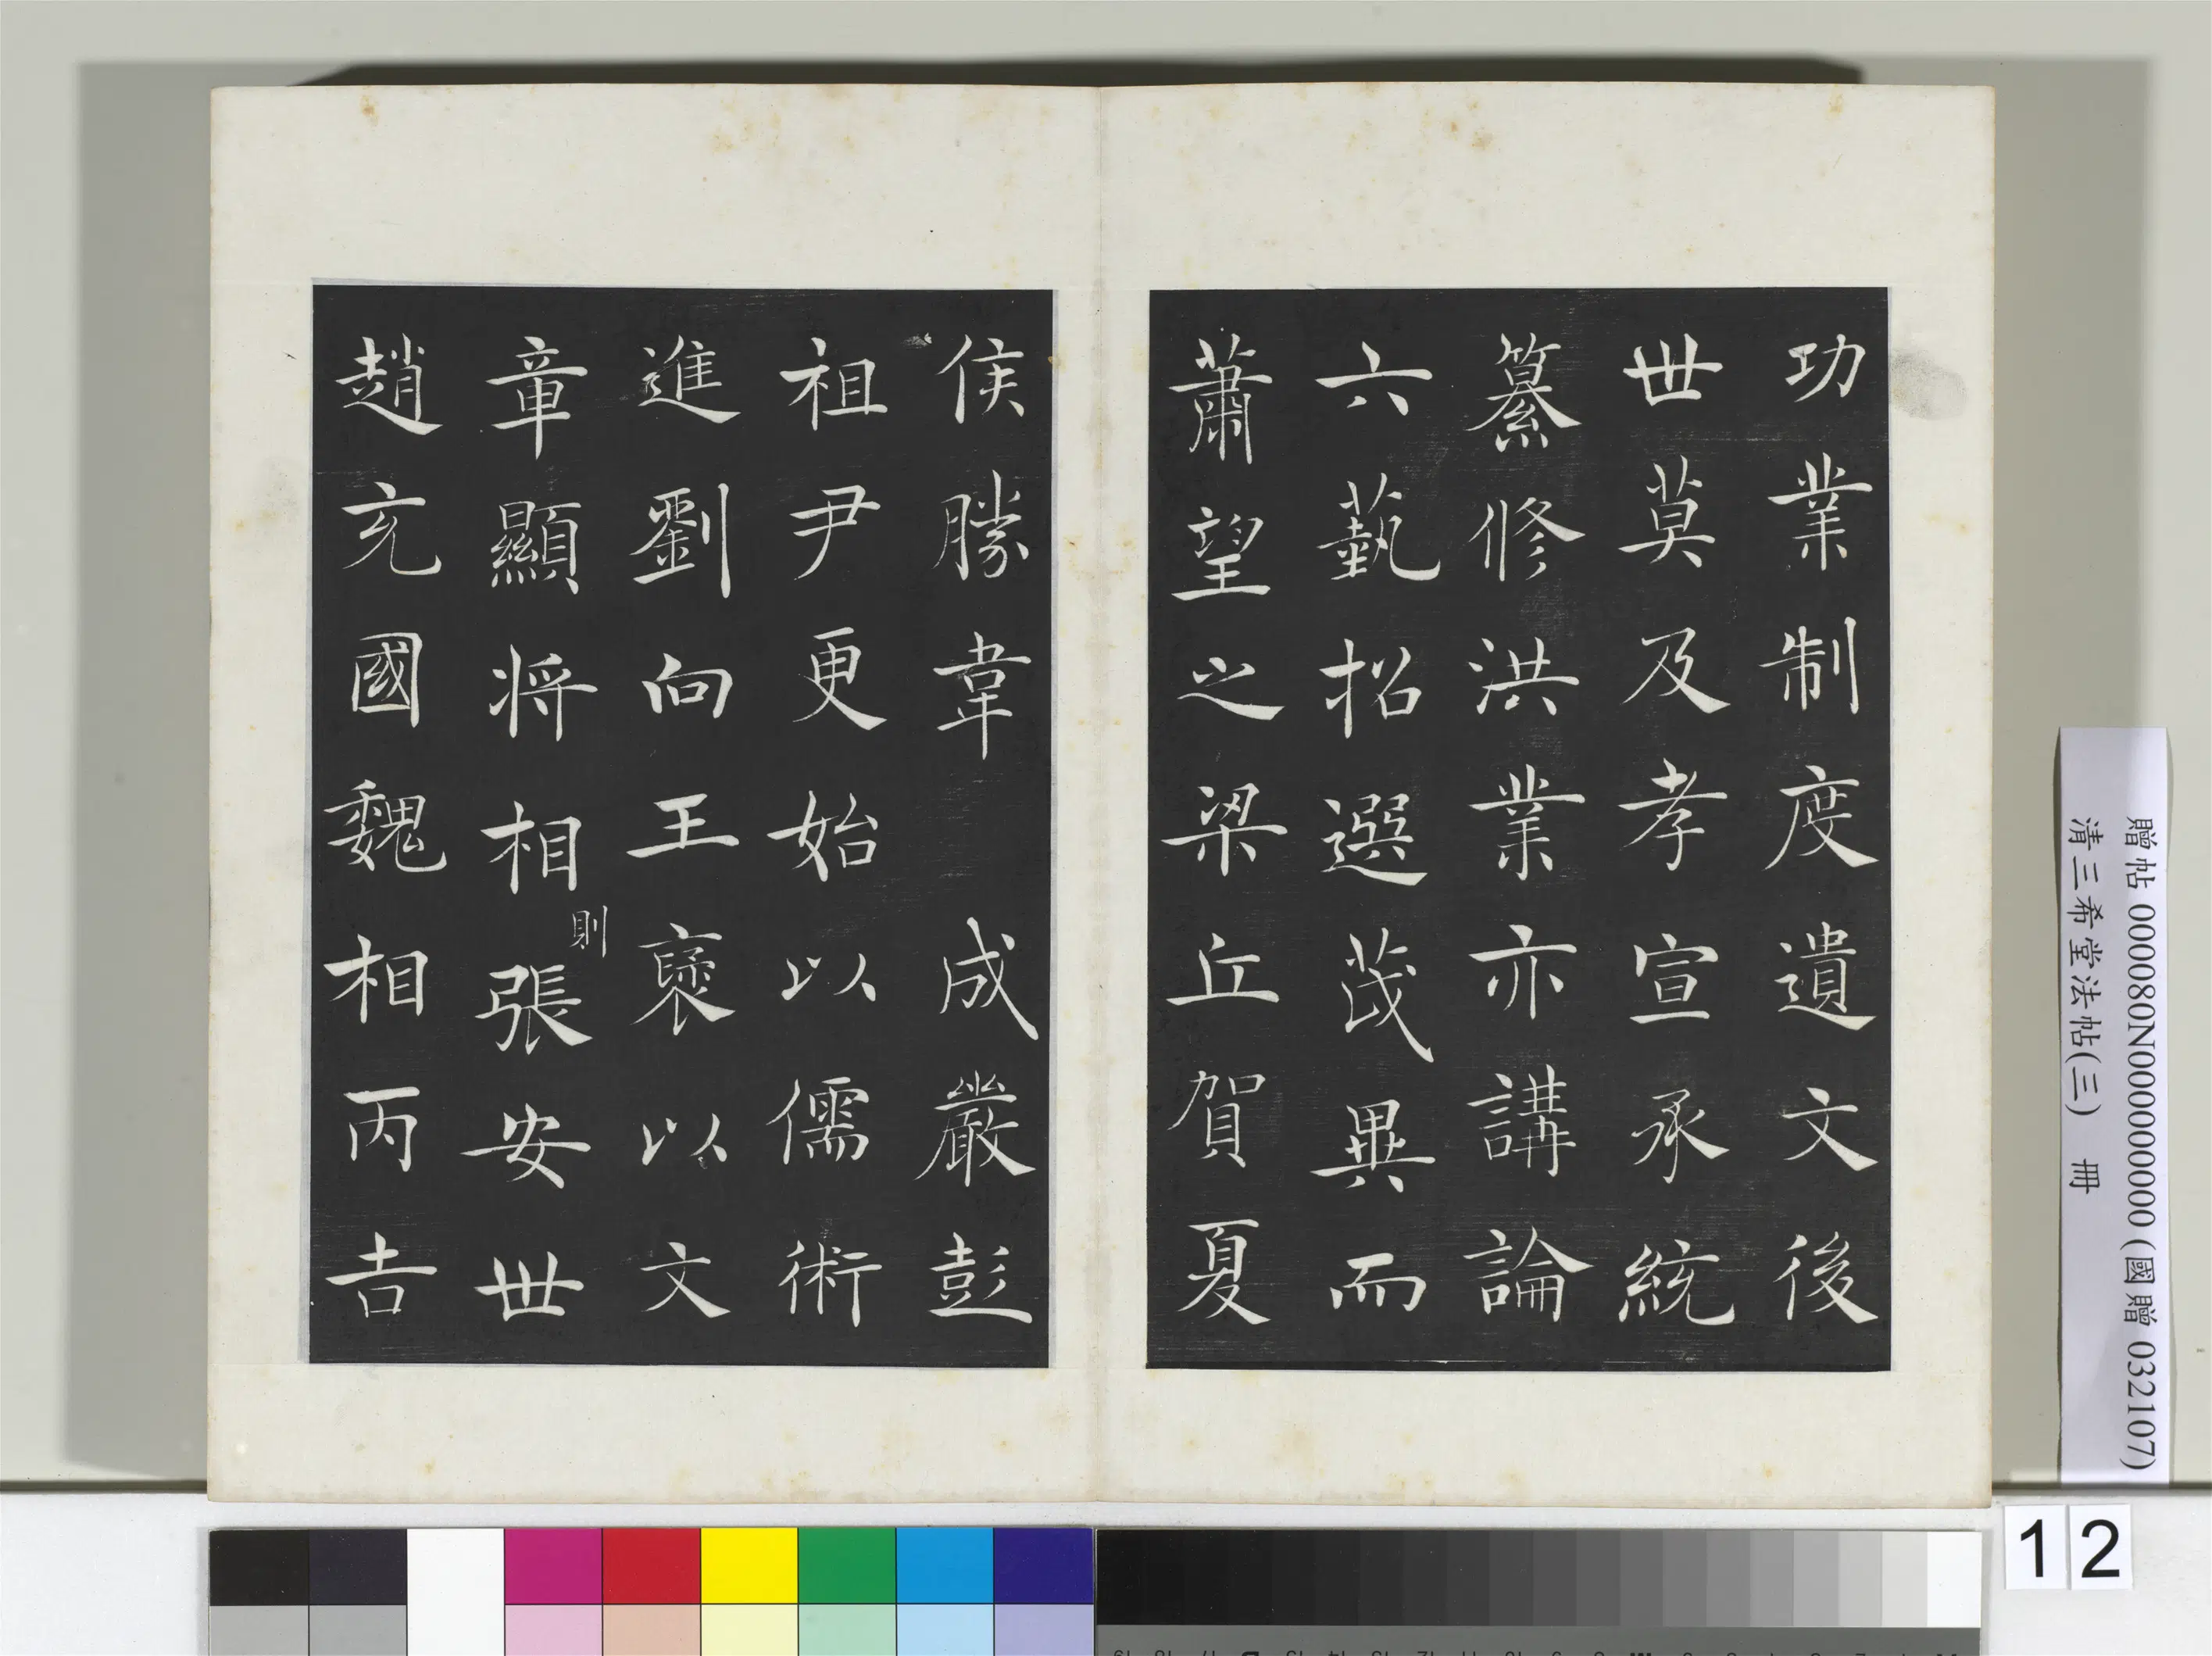 功業制度遺文後
世莫及孝宣承統
纂修洪業亦講論
六藝招選茂異而
蕭望之梁丘賀夏
侯勝韋 成嚴彭
祖尹更始以儒術
進劉向王褒以文
章顯將相則張安世
趙充國魏相丙吉
贈帖 000080N000000000 (國贈 032107)
清三希堂法帖(三) 冊
12